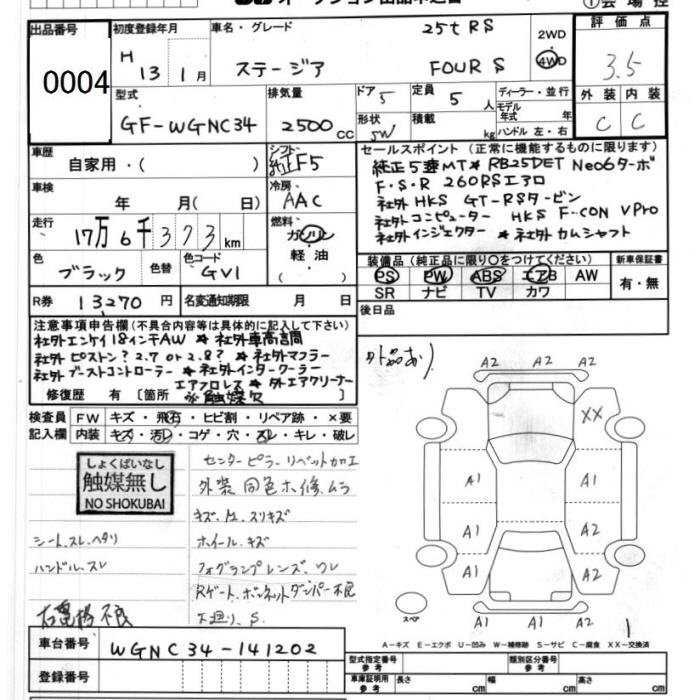 出品番号
0004
初度登録年月
H 13 1月
車名・グレード
25t RS
ステージア FOUR S
2WD
4WD
評価点
3.5
外装 内装
C C
型式
GF-WGNC34
排気量
2500cc
ドア 5
形状 SW
定員 5人
積載 kg
ディーラー・並行
モデル年式 年
ハンドル 左・右
車歴
自家用・( )
シフト
純正F5
車検
年 月( 日)
冷房
AAC
走行
17万6千373km
燃料
ガソリン
軽油
( )
色
ブラック
色替
色コード
GV1
R券 13270円
名変通知期限 月 日
セールスポイント (正常に機能するものに限ります)
純正5速MT* RB25DET Neo6ターボ
F・S・R 260RSエアロ
社外 HKS GT-RSタービン
社外コンピューター HKS F-CON VPro
社外インジェクター * 社外カムシャフト
装備品 (純正品に限り○をつけてください)
PS PW ABS エアB AW
SR ナビ TV カワ
新車保証書
有・無
後日品
注意事項申告欄 (不具合内容等は具体的に記入して下さい)
社外エンケイ18インチAW * 社外車高調
社外ピストン? 2.7 or 2.8? * 社外マフラー
社外ブーストコントローラー * 社外インタークーラー
エアフロレス * 外エアクリーナー
修復歴 有 [箇所
触媒欠
外品あり
検査員記入欄
FW キズ・飛石・ヒビ割・リペア跡・×要
内装 キズ・汚レ・コゲ・穴・スレ・キレ・破レ
しょくばいなし
触媒無し
NO SHOKUBAI
センターピラーリベット加工
外装 同色ホ修、ムラ
キズ、M、スリキズ
シート、スレ、ヘタリ
ホイール、キズ
ハンドル、スレ
フォグランプレンズ、ワレ
Rゲート、ボンネットダンパー不良
下廻り S
A2 A2
A2
XX
A1 A1
A1 A2
A1 A2
A1 A1 A2
スペア
1
A-キズ E-エクボ U-凹み W-補修跡 S-サビ C-腐食 XX-交換済
車台番号
WGNC34-141202
登録番号
型式指定番号参考
類別区分番号参考
車庫証明用参考
長さ cm 幅 cm 高さ cm